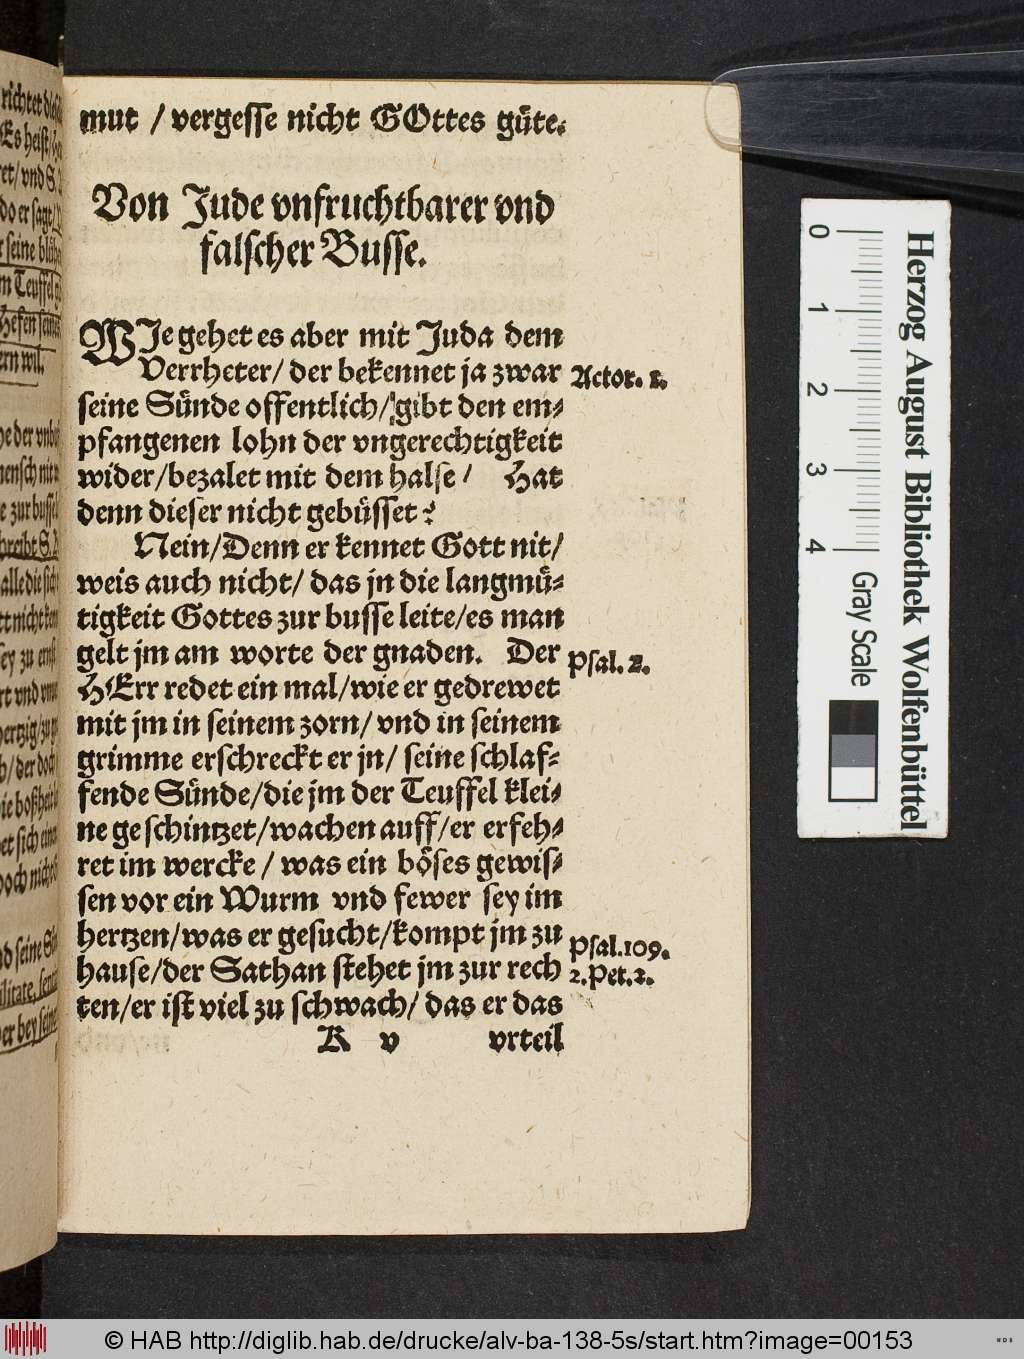 mut / vergesse nicht GOttes güte.
Von Jude vnfruchtbarer vnd
falscher Busse.
WJe gehet es aber mit Juda dem
Verrheter/ der bekennet ja zwar
Actor. 1.
seine Sünde offentlich/ gibt den em-
pfangenen lohn der vngerechtigkeit
wider/ bezalet mit dem halse/ Hat
denn dieser nicht gebüsset?
Nein/ Denn er kennet Gott nit/
weis auch nicht/ das jn die langmü-
tigkeit Gottes zur busse leite/ es man
gelt jm am worte der gnaden. Der
Psal. 2.
HErr redet ein mal/ wie er gedrewet
mit jm in seinem zorn/ vnd in seinem
grimme erschreckt er jn/ seine schlaf-
fende Sünde/ die jm der Teuffel klei-
ne geschintzet/ wachen auff/ er erfeh-
ret im wercke / was ein böses gewis-
sen vor ein Wurm vnd fewer sey im
hertzen/ was er gesucht/ kompt jm zu
Psal. 109.
hause/ der Sathan stehet jm zur rech
2. Pet. 2.
ten/ er ist viel zu schwach/ das er das
K v
vrteil
Herzog August Bibliothek Wolfenbüttel
0 1 2 3 4
Gray Scale
© HAB http://diglib.hab.de/drucke/alv-ba-138-5s/start.htm?image=00153